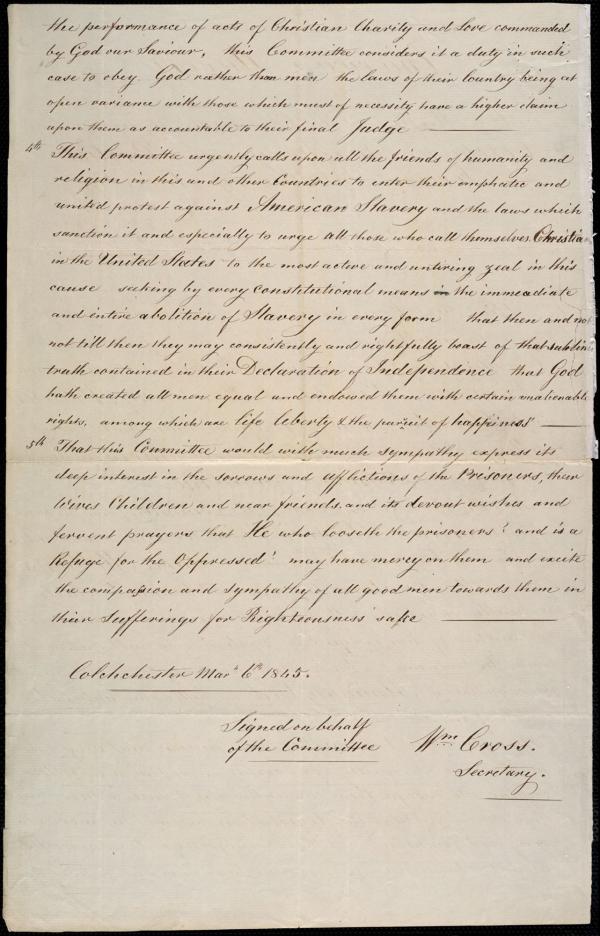 the performance of acts of Christian Charity and Love commanded
by God our Saviour, this Committee considers it a duty in such
case to obey God rather than men the laws of their Country being at
open variance with those which must of necessity have a higher claim
upon them as accountable to their final Judge
4th This Committee urgently calls upon all the friends of humanity and
religion in this and other Countries to enter their emphatic and
united protest against American Slavery and the laws which
sanction it and especially to urge all those who call themselves Christia
in the United States to the most active and untiring zeal in this
cause seeking by every constitutional means in the immediate
and entire abolition of Slavery in every form that then and not
not till then they may consistently and rightfully boast of that sublim
truth contained in their Declaration of Independence that God
hath created all men equal and endowed them with certain unalienable
rights, among which are life liberty & the pursuit of happiness"
5th That this Committee would with much sympathy express its
deep interest in the sorrows and afflictions of the Prisoners, their
Wives Children and near friends and its devout wishes and
fervent prayers that He who looseth the prisoners' and is a
Refuge for the Oppressed' may have mercy on them and excite
the compassion and sympathy of all good men towards them in
their Sufferings for Righteousness sake
Colchchester Marh 6th 1845.
Signed on behalf
of the Committee
Wm Cross.
Secretary.